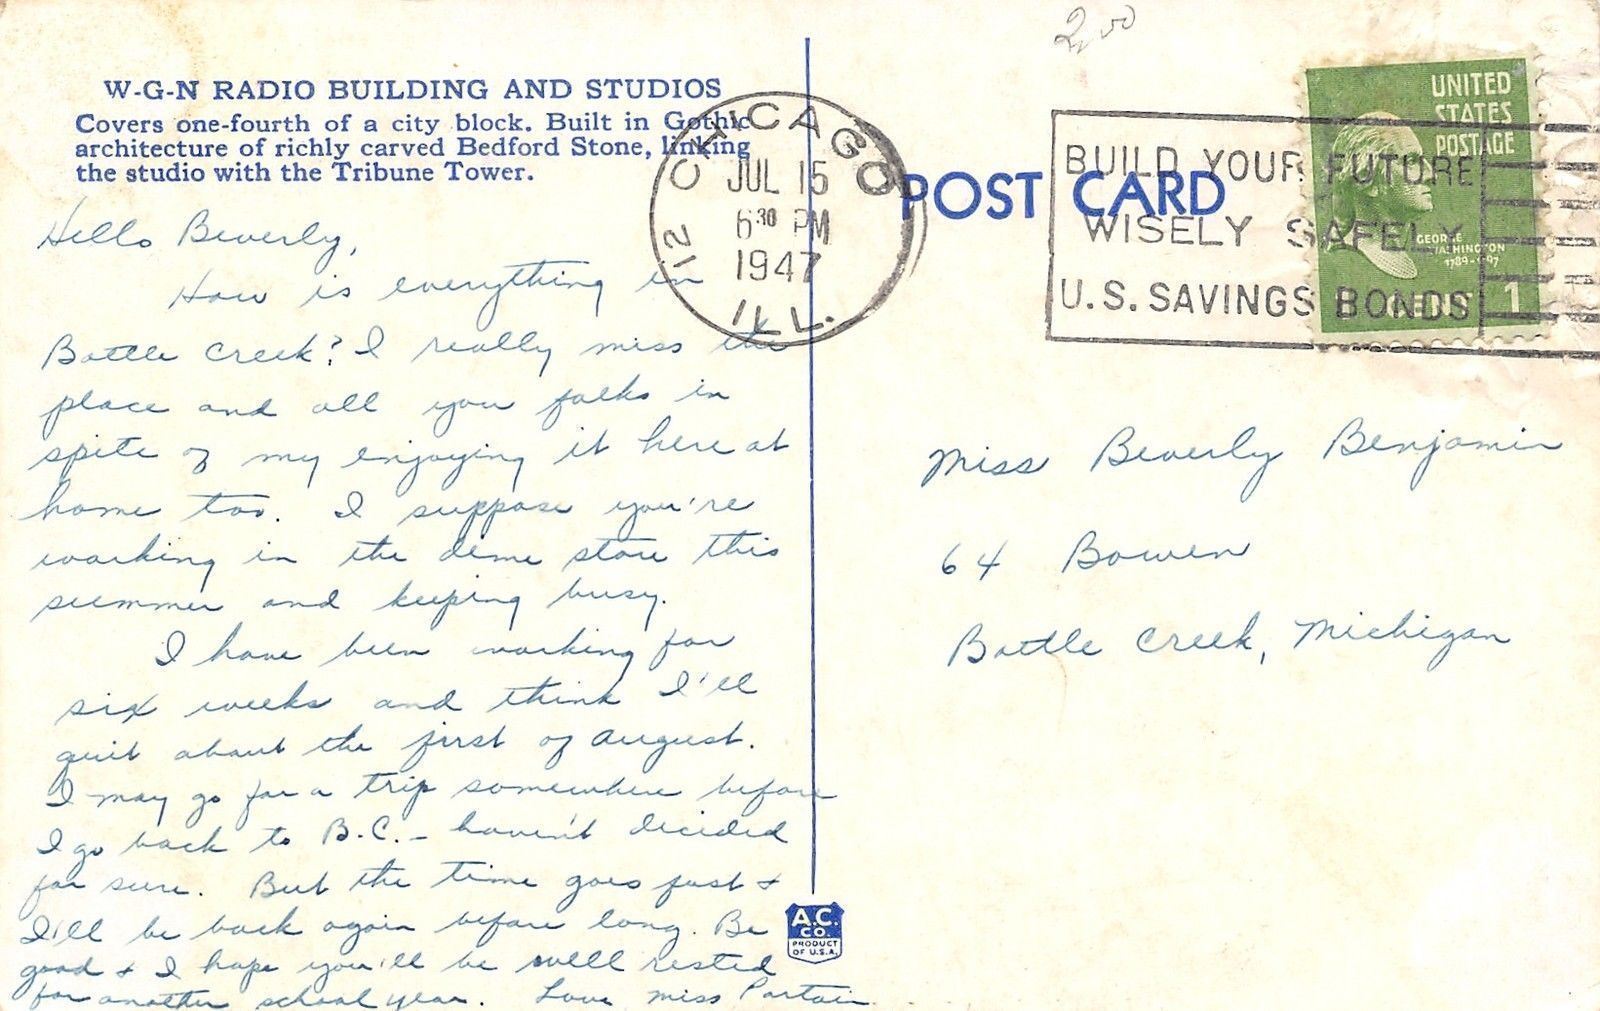 2.00
W-G-N RADIO BUILDING AND STUDIOS
Covers one-fourth of a city block. Built in Gothic
architecture of richly carved Bedford Stone, linking
the studio with the Tribune Tower.
Hello Beverly,
How is everything in
Battle Creek? I really miss the
place and all you folks in
spite of my enjoying it here at
home too. I suppose you're
working in the dime store this
summer and keeping busy.
I have been working for
six weeks and think I'll
quit about the first of August.
I may go for a trip somewhere before
I go back to B.C. - haven't decided
for sure. But the time goes fast +
I'll be back again before long. Be
good + I hope you'll be well rested
for another school year. Love Miss Partain
CHICAGO
12
JUL 15
6 30 PM
1947
ILL.
POST CARD
BUILD YOUR FUTURE
WISELY SAFELY
U.S. SAVINGS BONDS
UNITED
STATES
POSTAGE
GEORGE
WASHINGTON
1789-1797
1 CENT
Miss Beverly Benjamin
64 Bowen
Battle Creek, Michigan
A.C.
CO.
PRODUCT
OF U.S.A.